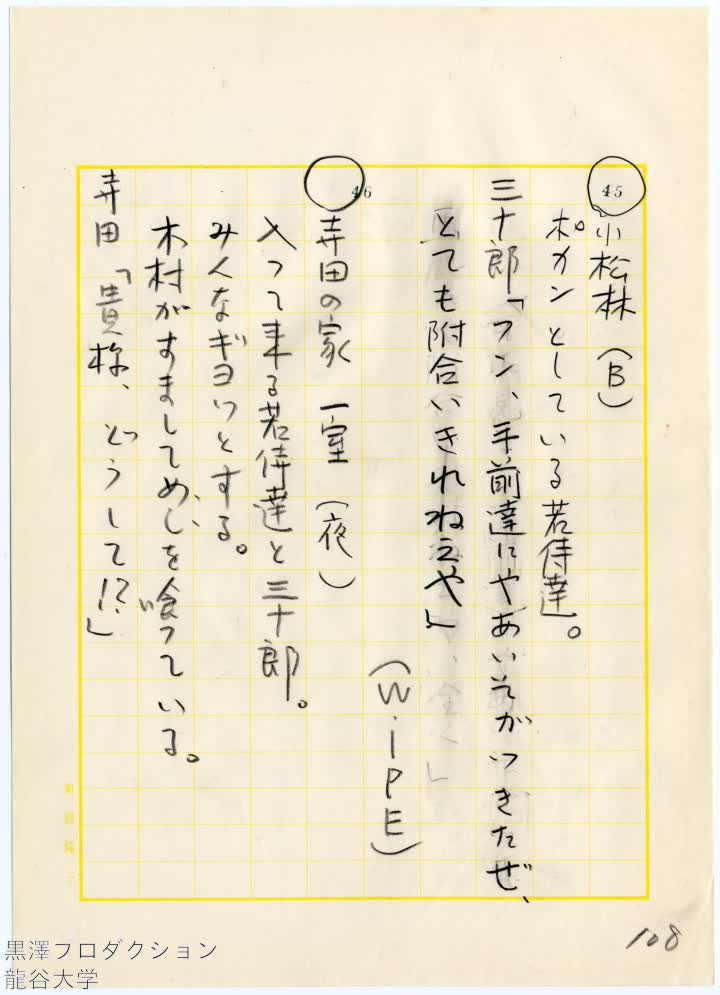 45
小松林(B)
ポカンとしている若侍達。
三十郎「フン、手前達にやあいそがつきたぜ、
とても附合いきれねえや」
(WIPE)
46
寺田の家 一室(夜)
入つて来る若侍達と三十郎。
みんなギヨツとする。
木村がすましてめしを喰つている。
寺田「貴様、どうして!?」
108
黒澤プロダクション
龍谷大学